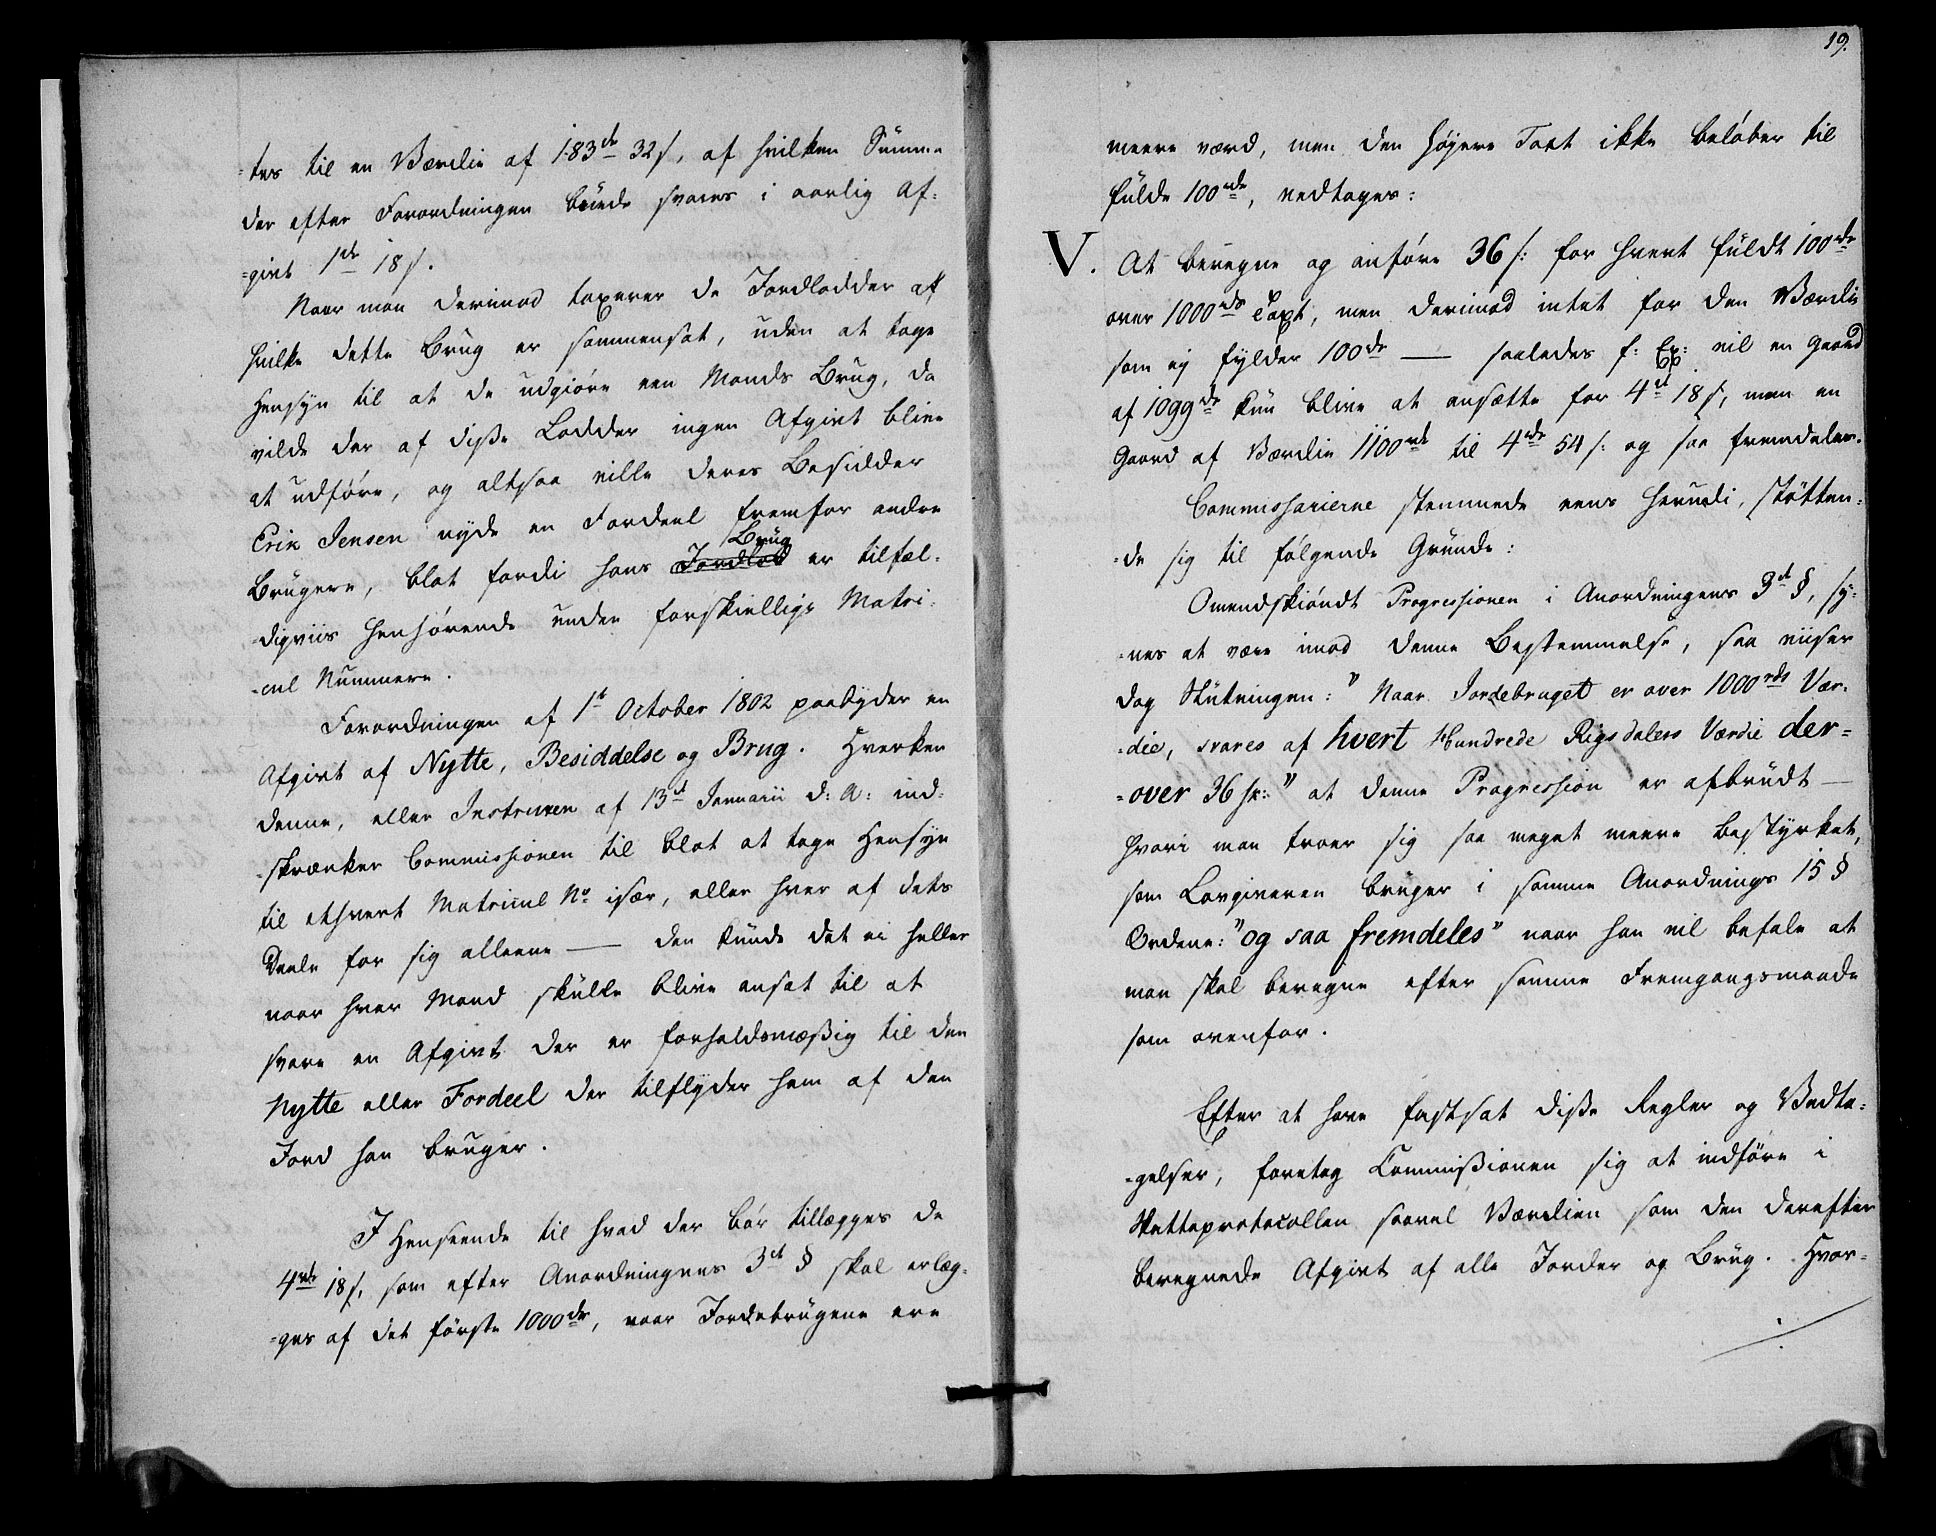 -tes til en Værdie af 183rd 32 s, af hvilken Summa
der efter Forordningen burde svares i aarlig Af-
-givt 1rd 18 s.
Naar man derimod taxerer de Jordlodder af
hvilke dette Brug er sammensat, uden at tage
Hensyn til at de udgiöre een Mands Brug, da
vilde der af disse Lodder ingen Afgivt blive
at udføre, og altsaa ville deres Besidder
Erik Jensen nyde en Fordeel fremfor andre
Brug
Brugere, blot fordi hans Jordlod er tilfæl-
-digviis henhørende under forskiellige Matri-
-cul Nummere.
Forordningen af 1t October 1802 paabyder en
Afgivt af Nytte, Besiddelse og Brug. Hverken
denne, eller Instruxen af 13d Januarii d: A: ind-
-skrænker Commissionen til blot at tage Hensyn
til ethvert Matricul No især, eller hver af dets
Deele for sig alleene — den kunde det ei heller
naar hver Mand skulle blive ansat til at
svare en Afgivt der er forholdsmæssig til den
Nytte eller Fordeel der tilflyder ham af den
Jord han bruger.
I Henseende til hvad der bør tillægges de
4rdr 18 s, som efter Anordningens 3d § skal erlæg-
-ges af det første 1000rdr, naar Jordebrugene ere
19.
meere værd, men den høyere Taxt ikke beløber til
fulde 100rdr, vedtoges:
V. At beregne og anføre 36 s: for hvert fuldt 100rdr
over 1000rdr Taxt, men derimod intet for den Værdie
som ej fylder 100rdr — saaledes f: Ex: vil en Gaard
af 1099rdr kun blive at ansætte for 4rd 18 s, men en
Gaard af Værdie 1100rdr til 4rdr 54 s: og saa fremdeles.
Commissarierne stemmede eens herudi, støtten-
-de sig til følgende Grunde:
Omendskiøndt Progressionen i Anordningens 3d §, sy-
-nes at være imod denne Bestemmelse, saa viiser
dog Slutningen: "Naar Jordebruget er over 1000rds Vær-
-die, svares af hvert Hundrede Rigsdalers Værdie der-
-over 36 sk:" at denne Progression er afbrudt —
hvori man troer sig saa meget meere bestyrket,
som Lovgiveren bruger i samme Anordnings 15 §
Ordene: "og saa fremdeles" naar han vil befale at
man skal beregne efter samme Fremgangsmaade
som ovenfor.
Efter at have fastsat disse Regler og Vedta-
-gelser, foretog Commissionen sig at indføre i
Skatteprotocollen saavel Værdien som den derefter
beregnede Afgivt af alle Jorder og Brug. Hvor-